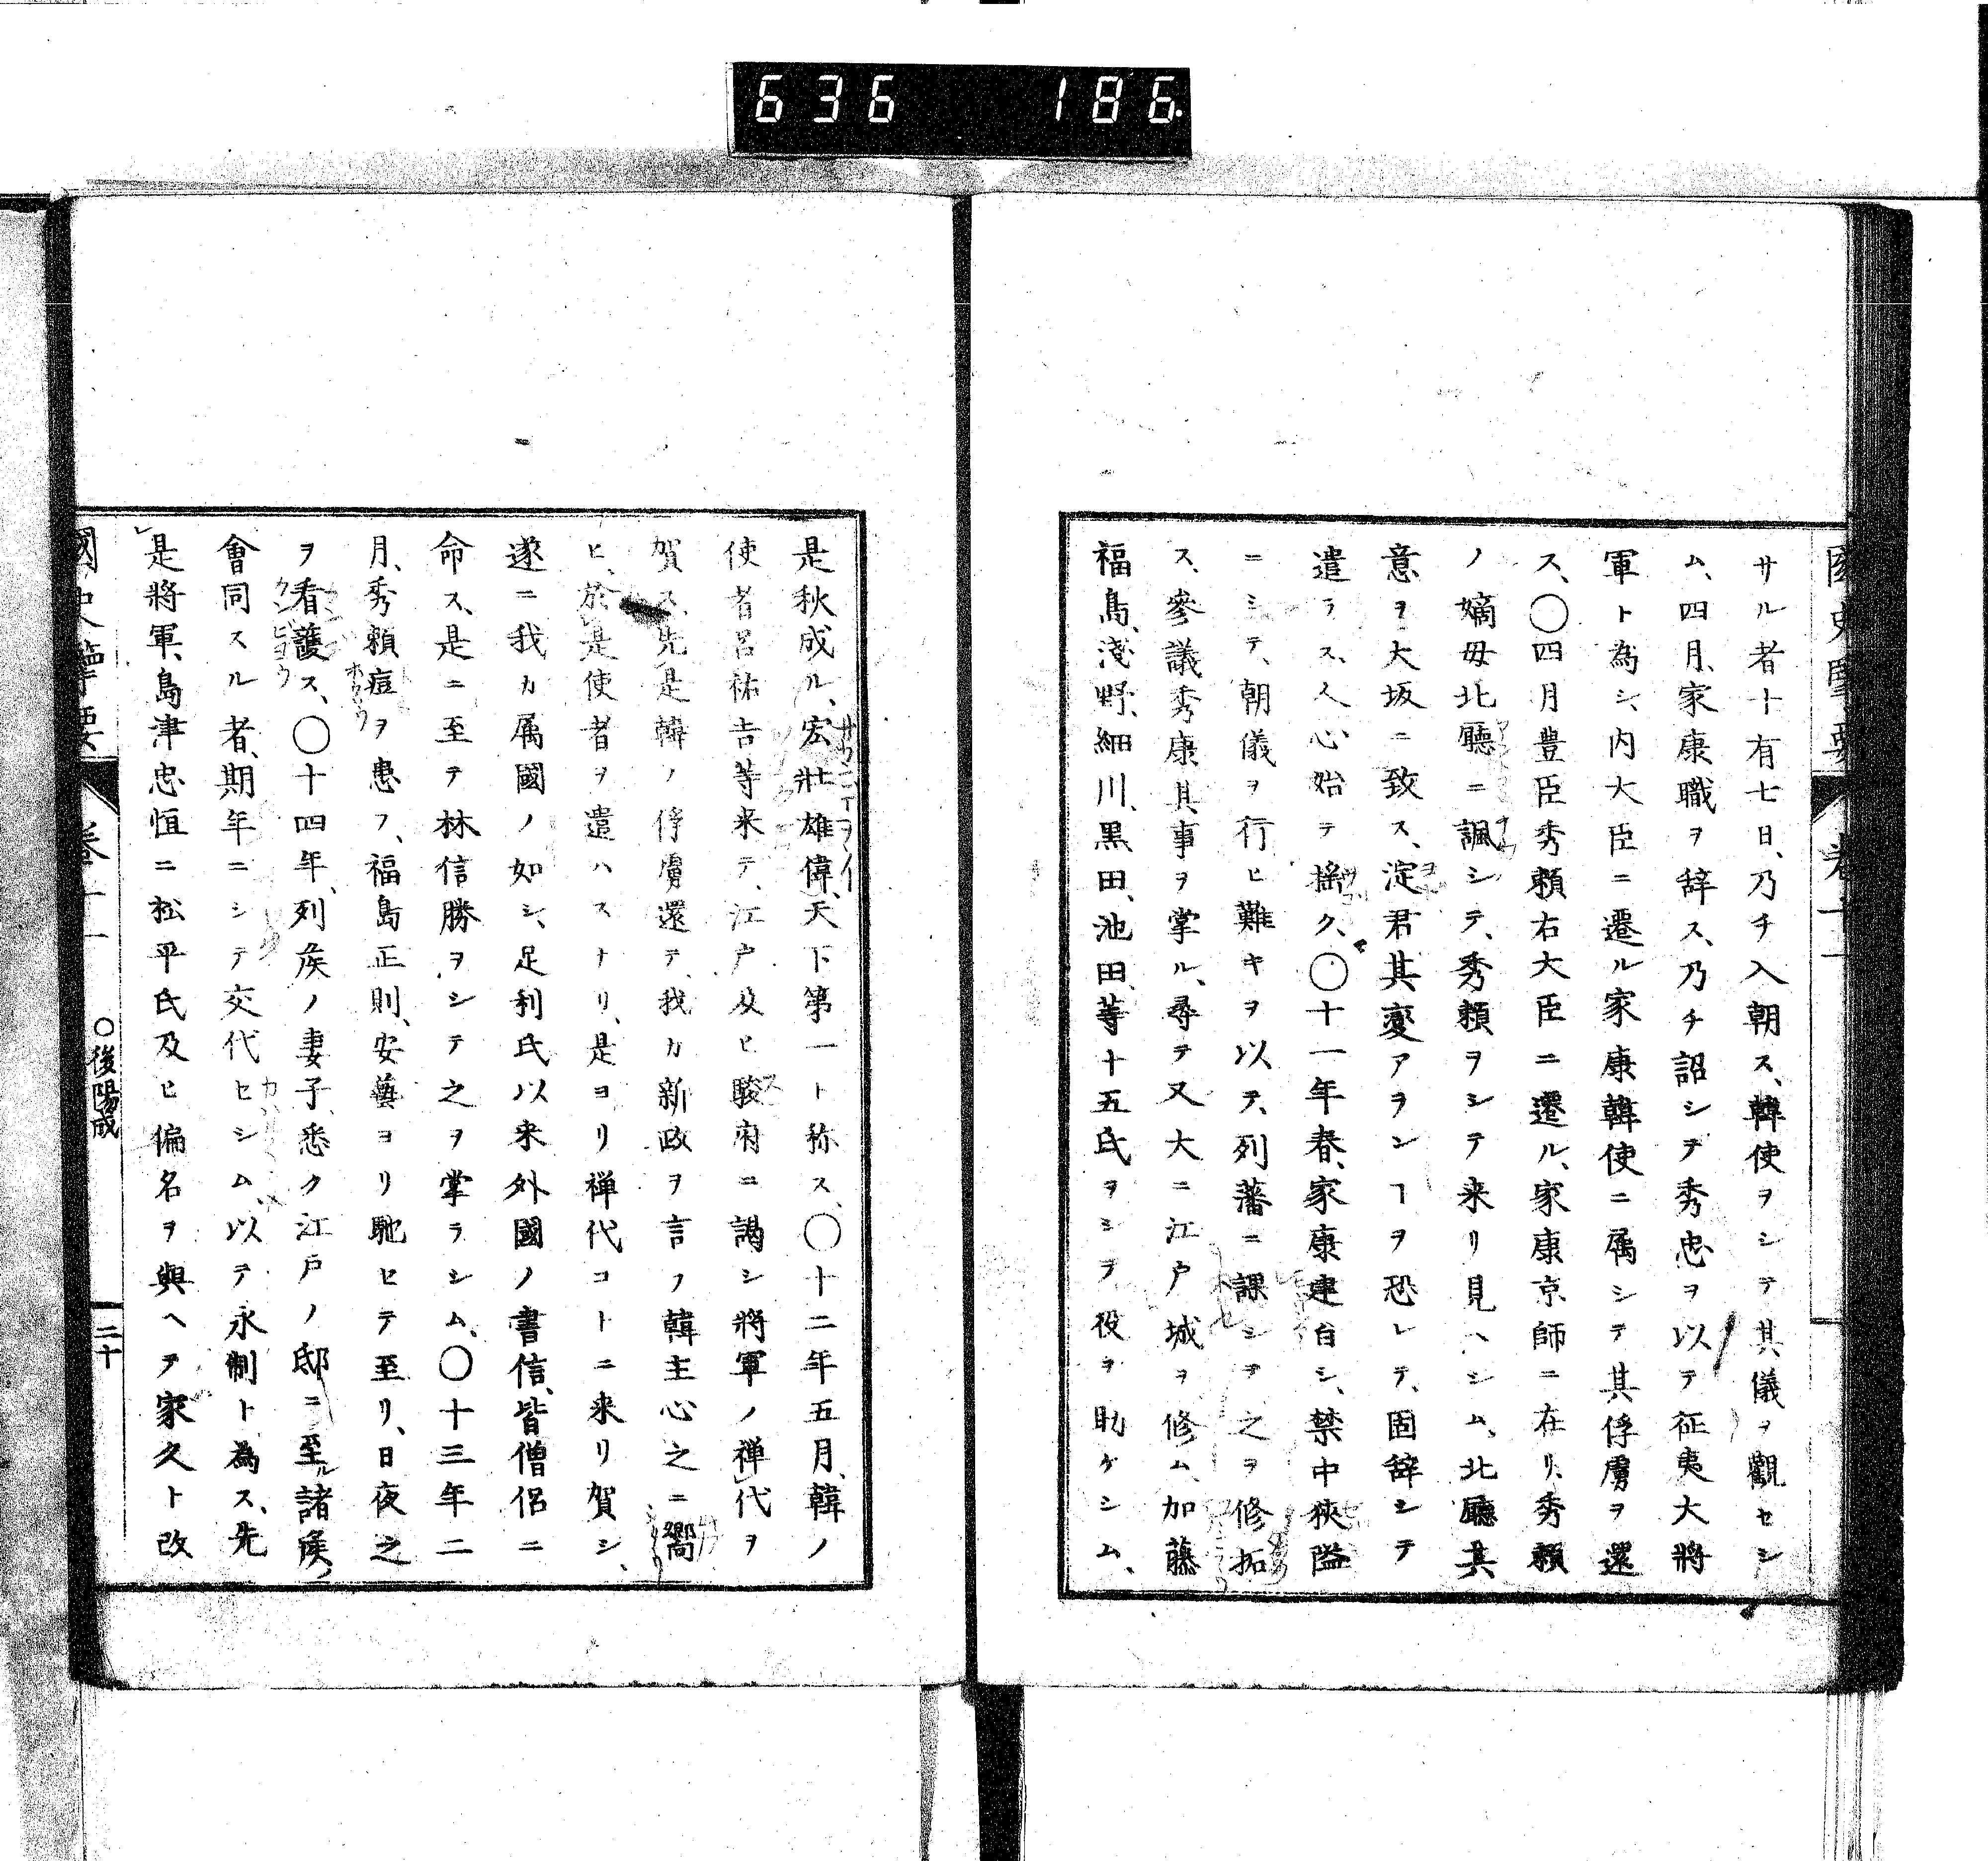 636 186.
國史擥要
巻十一
サル者十有七日、乃チ入朝ス、韓使ヲシテ其儀ヲ觀セシ
ム、四月、家康職ヲ辞ス、乃チ詔シテ秀忠ヲ以テ征夷大將
軍ト為シ、内大臣ニ遷ル家康韓使ニ属シテ其俘虜ヲ還
ス、〇四月豊臣秀頼右大臣ニ遷ル、家康京師ニ在リ、秀頼
ノ嫡母北廳ニ諷シテ、秀頼ヲシテ来リ見ヘシム、北廳其
意ヲ大坂ニ致ス、淀君其変アランヿヲ恐レテ、固辞シテ
遣ラス、人心始テ揺ク、〇十一年春、家康建白シ、禁中狹隘
ニシテ、朝儀ヲ行ヒ難キヲ以テ、列藩ニ課シテ之ヲ修拓
ス、參議秀康其事ヲ掌ル、尋テ又大ニ江戸城ヲ修ム、加藤
福島、淺野、細川、黒田、池田、等十五氏ヲシテ役ヲ助ケシム、
是秋、成ル、宏壯雄偉、天下第一ト称ス、〇十二年五月、韓ノ
使者呂祐吉等来テ、江戸及ヒ駿府ニ謁シ將軍ノ禅代ヲ
賀ス、先是韓ノ俘虜還テ、我カ新政ヲ言フ韓主心之ニ嚮
ヒ、於是使者ヲ遣ハスナリ、是ヨリ禅代コトニ来リ賀シ、
遂ニ我カ属國ノ如シ、足利氏以来外國ノ書信、皆僧侶ニ
命ス、是ニ至テ林信勝ヲシテ之ヲ掌ラシム、〇十三年二
月、秀頼痘ヲ患フ、福島正則、安藝ヨリ馳セテ至リ、日夜之
ヲ看護ス、〇十四年、列矦ノ妻子、悉ク江戸ノ邸ニ至ル諸矦、
會同スル者、期年ニシテ交代セシム、以テ永制ト為ス、先
是將軍、島津忠恒ニ松平氏及ヒ偏名ヲ與ヘテ家久ト改
國史擥要
巻十一
〇後陽成
二十